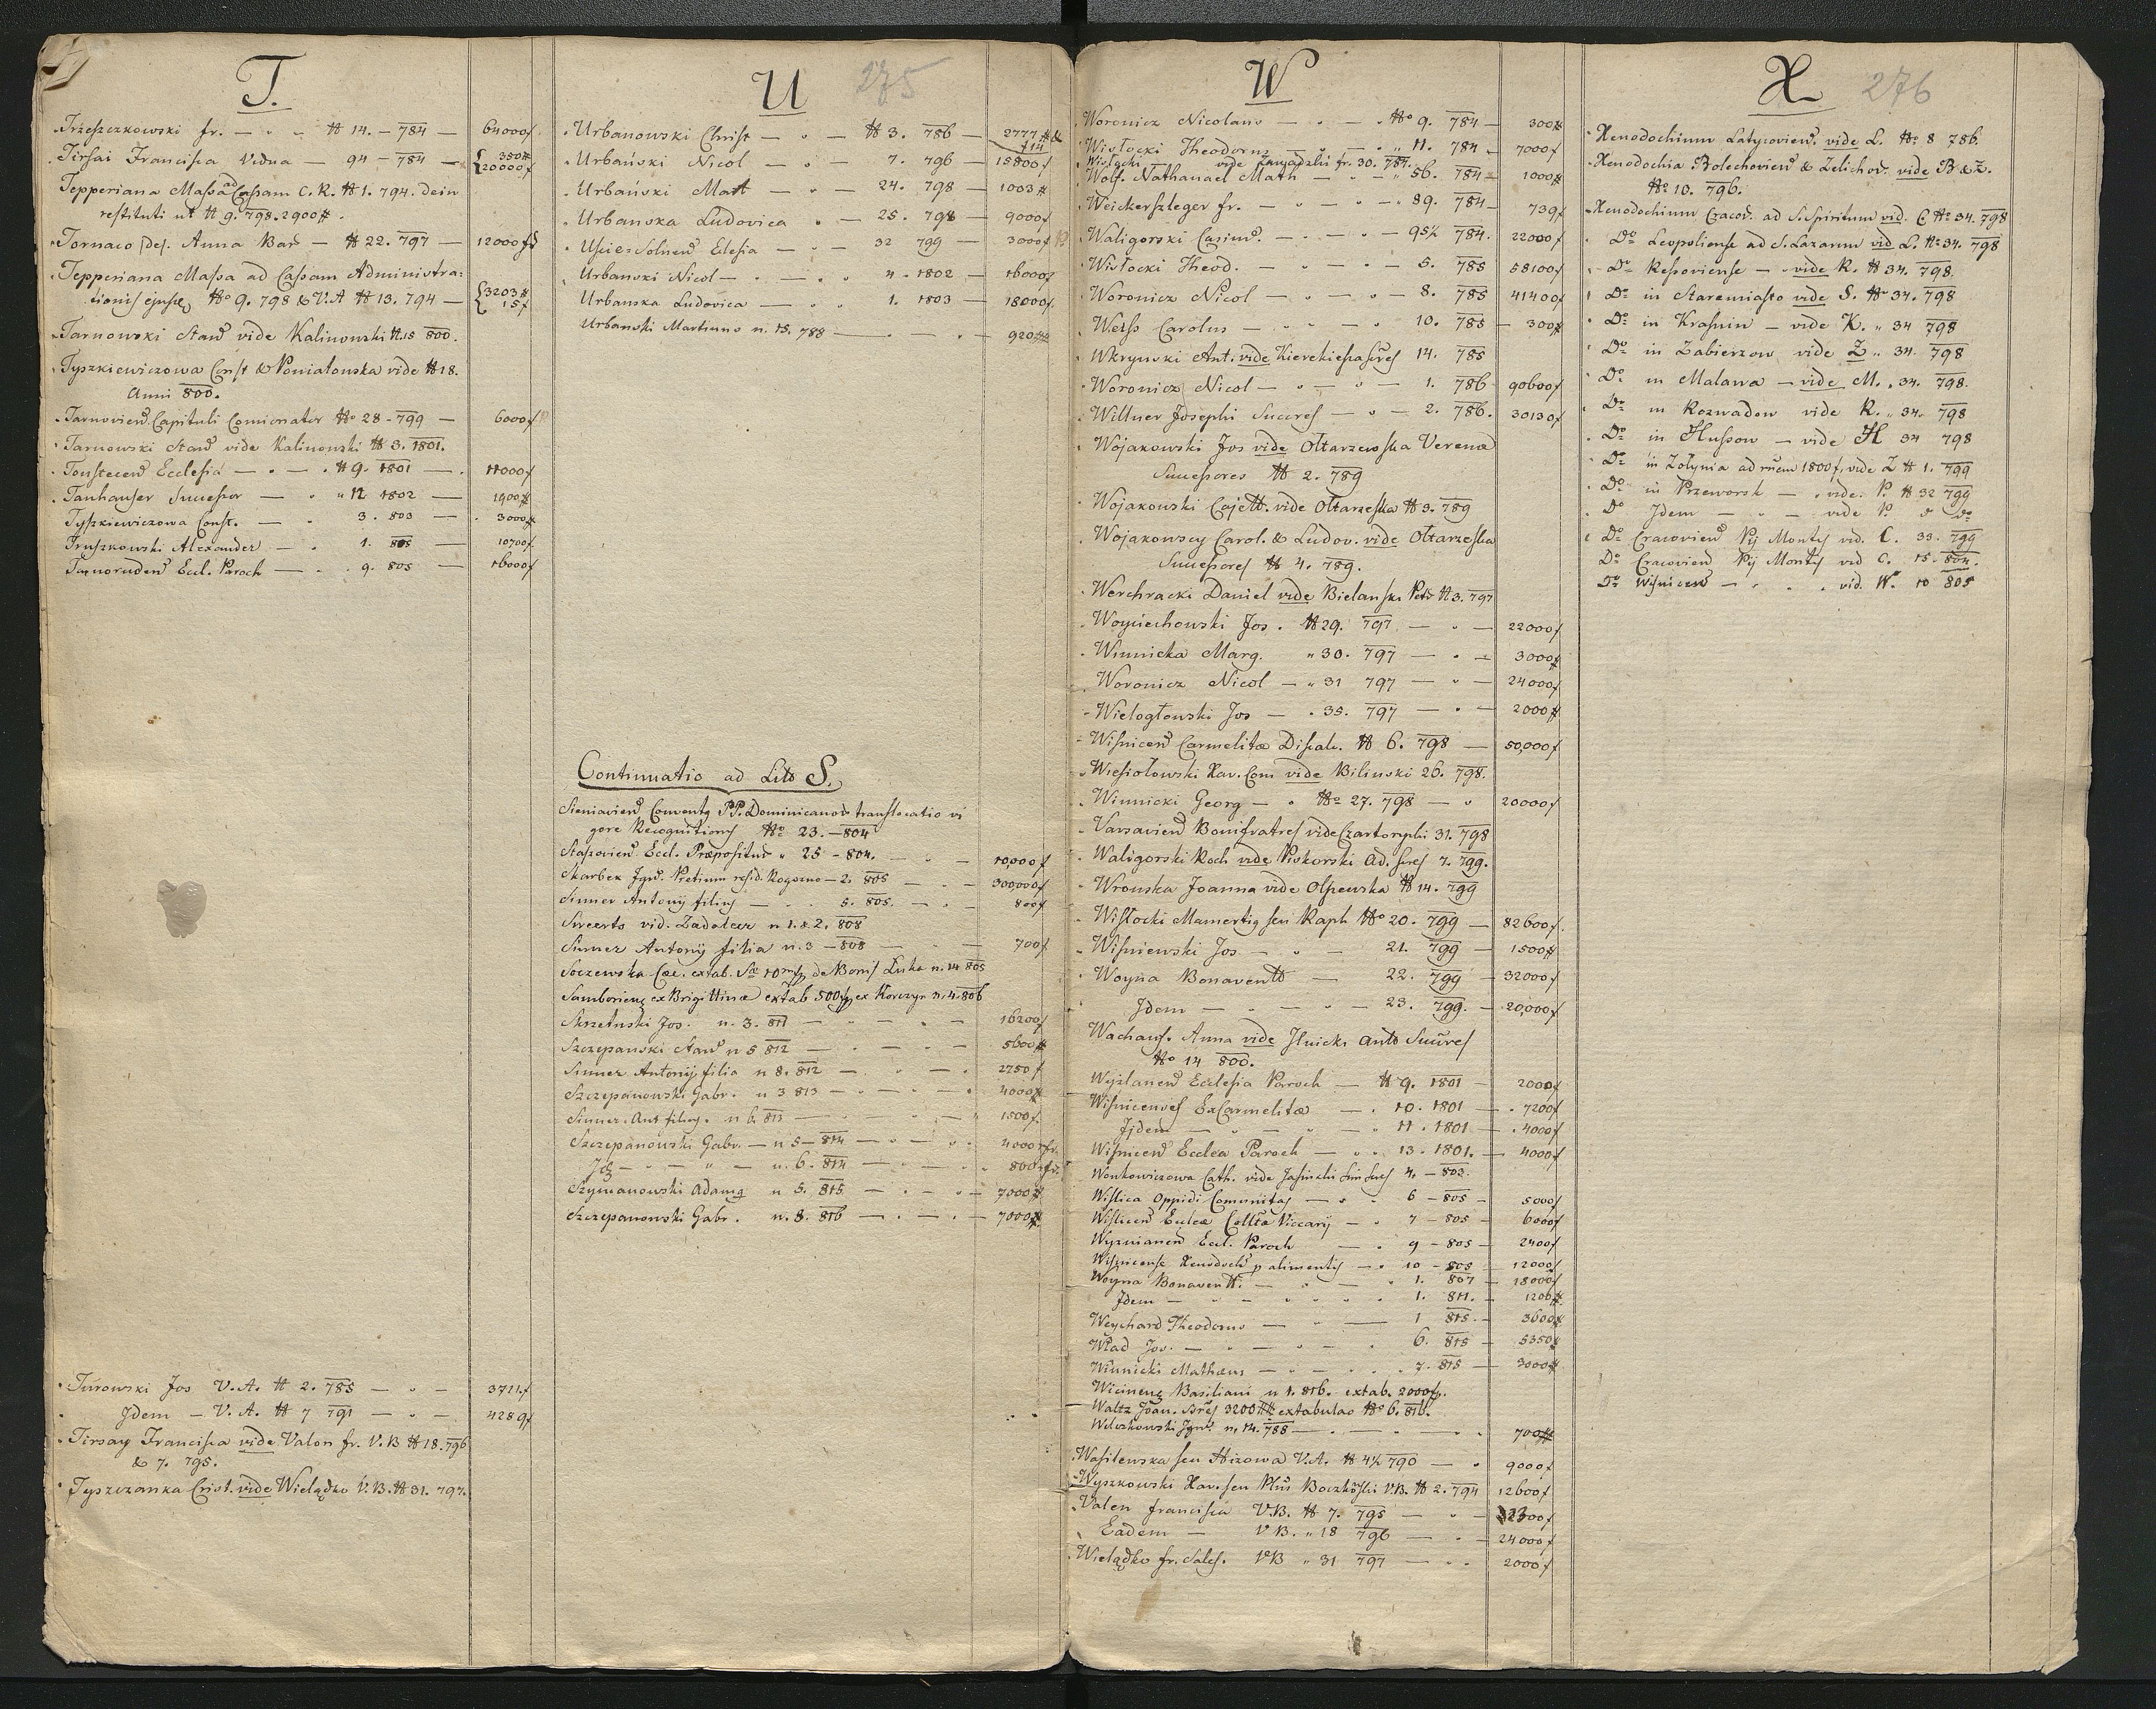 T.
Trzeszczkowski fr. — " — # 14. — 784 — 64000f
Tirsai Francisca Vidua — 94 — 784 — { 350#
20000f
Tepperiana Massa ad Cassam C. R. # 1. 794. dein
restituti ut # 9. 798. 2900#.
Tornaco Anna — # 22. 797 — 12000f
Tepperiana Massa ad Cassam Administra-
tionis No 9. 798 & V. A # 13. 794 — { 3203#
15f
Tarnowski Stan vide Kalinowski # 15 800.
Tyszkiewiczowa Const & Poniatowska vide # 18.
Anni 800.
Tarnovien Capituli Concionator No 28 - 799 — 6000f
Tarnowski Stan vide Kalinowski # 3. 1801.
Ecclesia — " — # 9. 1801 — 11000f
Tanhauser Successor — " 12 1802 — 1900#
Tyszkiewiczowa Const. — " 3. 803 — 3000#
Truszkowski Alexander — . 1. 805 — 10700f.
Eccl. Paroch — . . 9. 805 — 16000f
Turowski Jos V. A. # 2. 785 — " — 3711.f
Idem — V. A. # 7 791 — " — 4289f
Tirsay Francisca vide Valon fr. V. B # 18. 796
& 7. 795.
Tyszczanka Crist. vide Wielądko V. B. # 31. 797.
U 275
Urbanowski Christ — " — # 3. 786 — 2777 # &
f 14
Urbański Nicol — " — 7. 796 — 15800f
Urbański Mart — " — 24. 798 — 1003#
Urbanska Ludovica " — 25. 798 — 9000f
Uscie-Solnen Eclesia — " — 32 799 — 3000f
Urbanski Nicol — . — " " 4 - 1802 — 16000f
Urbanska Ludovica — " " 1. 1803 — 18000f
Urbanski Martinus n. 15. 788 — . — . — 920##
Continuatio ad Litt S.
Sieniavien Conventq PP. Dominicanor translocatio vi
gore Recognitionis No 23. — 804
Staszovien Eccl. Præpositus " 25 - 804. — " — 10,000f
Skarbek Ign. Pretium resid. Rogozno — 2. 805 — . — 300,000f
Sinner Antonij filius — . . 5. 805. — . — 800f
Sweerts vid. n 1. & 2. 808
Sinner Antonij filia n. 3 - 808 — . — 700f
Soczewska extab. de Bonis n. 14 805
Samboriens ex Brigittinæ extab 500 ex Korczyn n. 4. 806
Skrzetuski Jos. n. 3. 811 — . — . — 16200f
Szczepanski Stan n 5 812 — . — . — 5600#
Sinner Antonij filia n 8. 812 — . — . 2750f
Szczepanowski Gabr. n 3 813 — . — . — 4000#
Sinner Ant filius. n 6. 813 — . — . — 1500f.
Szczepanowski Gabr. — n 5 — 814 — . — . . 4000
— " — " — n. 6. 814 — . — . . 800
Szymanowski Adamg n 5. 815 — . — . — 7000#
Szczepanowski Gabr. n. 8. 816 — . — . — 7000#
W
Woronicz Nicolaus — " — . No 9. 784 — 300#
Wisłocki Theodorus — " — " 11. 784 — 7000f
Wislocki vide Zawadzki fr. 30. 784.
Wolf. Nathanael Math — " — " 56. 784 — 1000#
Weickerszleger fr. — " — " — " 89. 784 — 739f
Waligorski Casim. — . — " — 95½ 784. 22000f
Wisłocki Theod. — " — " — 5. 785 58100f
Woronicz Nicol — " — " — 8. 785 41400f
Weiss Carolus — " . — " 10. 785 — 300#
Wkrynski Ant. vide 14. 785
Woronicz Nicol — " — " — 1. 786 90600f
Willner Josephi Succres — " — 2. 786. 30130f
Wojakowski Jos vide Ołtarzewska Verenæ
Successores # 2. 789
Wojakowski Cajett. vide Ołtarzeska # 3. 789
Wojakowscy Carol. & Ludov. vide Ołtarzeska
Successores # 4. 789.
Werchracki Daniel vide Bielanski Petr # 3. 797
Woyciechowski Jos. # 29. 797 — " — 22000f
Winnicka Marg. " 30. 797 — " — 3000#
Woronicz Nicol — " 31 797 — " — 24000f
Wielogłowski Jos — . 35. 797 — " — 2000#
Wisnicen Carmelitæ Discalc. # 6. 798 — 50,000f
Wiesiołowski Xav. Com vide Bilinski 26. 798.
Winnicki Georg — " No 27. 798 — " 20000f
Varsavien Bonifratres vide Czartoryski 31. 798
Waligorski Roch vide Piskorski Ad. Sres 7. 799.
Wronska Joanna vide Olszewska # 14. 799
Wisłocki Mamertig seu Raph No 20. 799 — 82600f.
Wisniewski Jos — " — 21. 799 — 1500#
Woyna Bonavent — 22. 799 — 32000f
Idem — " — " — 23. 799. — 20,000f
Wachaus. Anna vide Ilnicki Ant Succres
No 14 800.
Wyzlanen Ecclesia Paroch — # 9. 1801 — 2000f
Wisnicenses ExCarmelitæ — . 10. 1801 — . 7200f
Ijdem — " — " — " 11. 1801 — . 4000f
Wisnicen Ecclea Paroch — " . 13. 1801. — 4000f
Wonkowiczowa Cath. vide Jasinski Sres 4. — 803.
Wislica Oppidi Comunitas — " . 6 — 805 — 5000f
Wislicen Eccleæ Collta Viccarij — " 7 — 805 — 6000f
Wyznianen Eccl. Paroch — . 9 — 805 — 2400f
Wisnicense Xenodoch p alimentis — . 10 — 805 12000f
Woyna Bonavent. — . — . 1. 807 — 18000f
Idem — " — " " " . 1. 811. — 1200#.
Weychard Theodorus — " — 1 815. — 3600#
Wład Jos. — " — " — " . 6. 815 — 5350#
Winnicki Mathæus — " — . . 7. 815 — 3000#
Basiliani n 1. 816. extab. 2000
Waltz Joan. Sres 3200## extabulao No 6. 816.
Ign. n. 14. 788 — . — . — . 700##
Wasilewska seu Hizowa V. A. # 4½ 790 — " 9000f
Wyszkowski Xav. seu V. B. # 2. 794 12600f
Valen Francisca V. B. # 7. 795 — " — 32300f
Eadem — V B. " 18 796 — " — 24000f
Wielądko fr. Sales. V B " 31 797 — " . 2000f
X 276
Xenodochium Latycovien. vide L. No 8 786.
Xenodochia Bolechovien & Zelichov. vide B & Z.
No 10. 796.
Xenodochium Cracov. ad S. Spiritum vid. C. No 34. 798
Do Leopoliense ad S. Lazarum vid L. No 34. 798
Do Ressoviense — vide R. # 34. 798.
Do in Staremiasto vide S. No 34. 798
Do in Krasnin — vide K. " 34 798
Do in Zabierzow vide Z " 34. 798
Do in Malawa — vide M. " 34. 798.
Do in Rozwadow vide R. " 34. 798
Do in Hussow — vide H 34 798
Do in Zołynia ad 1800f, vide Z # 1. 799
Do in Przeworsk — " vide. P. # 32 799
Do Idem — " — vide P. Do Do
Do Cracovien Pij Montis vid. C. 33. 799
Do Cracovien Pij Montis vid C. 15. 804.
Do Wisnicen — " . . vid. W. 10 805